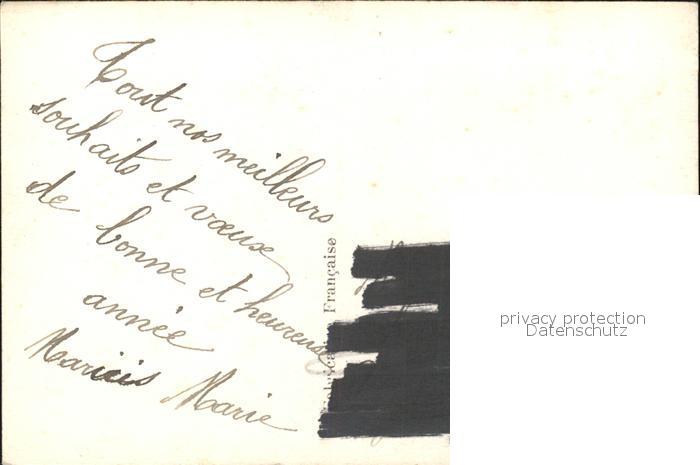 Tout nos meilleurs
souhaits et vœux
de bonne et heureuse
année
Marius Marie
Française
privacy protection
Datenschutz